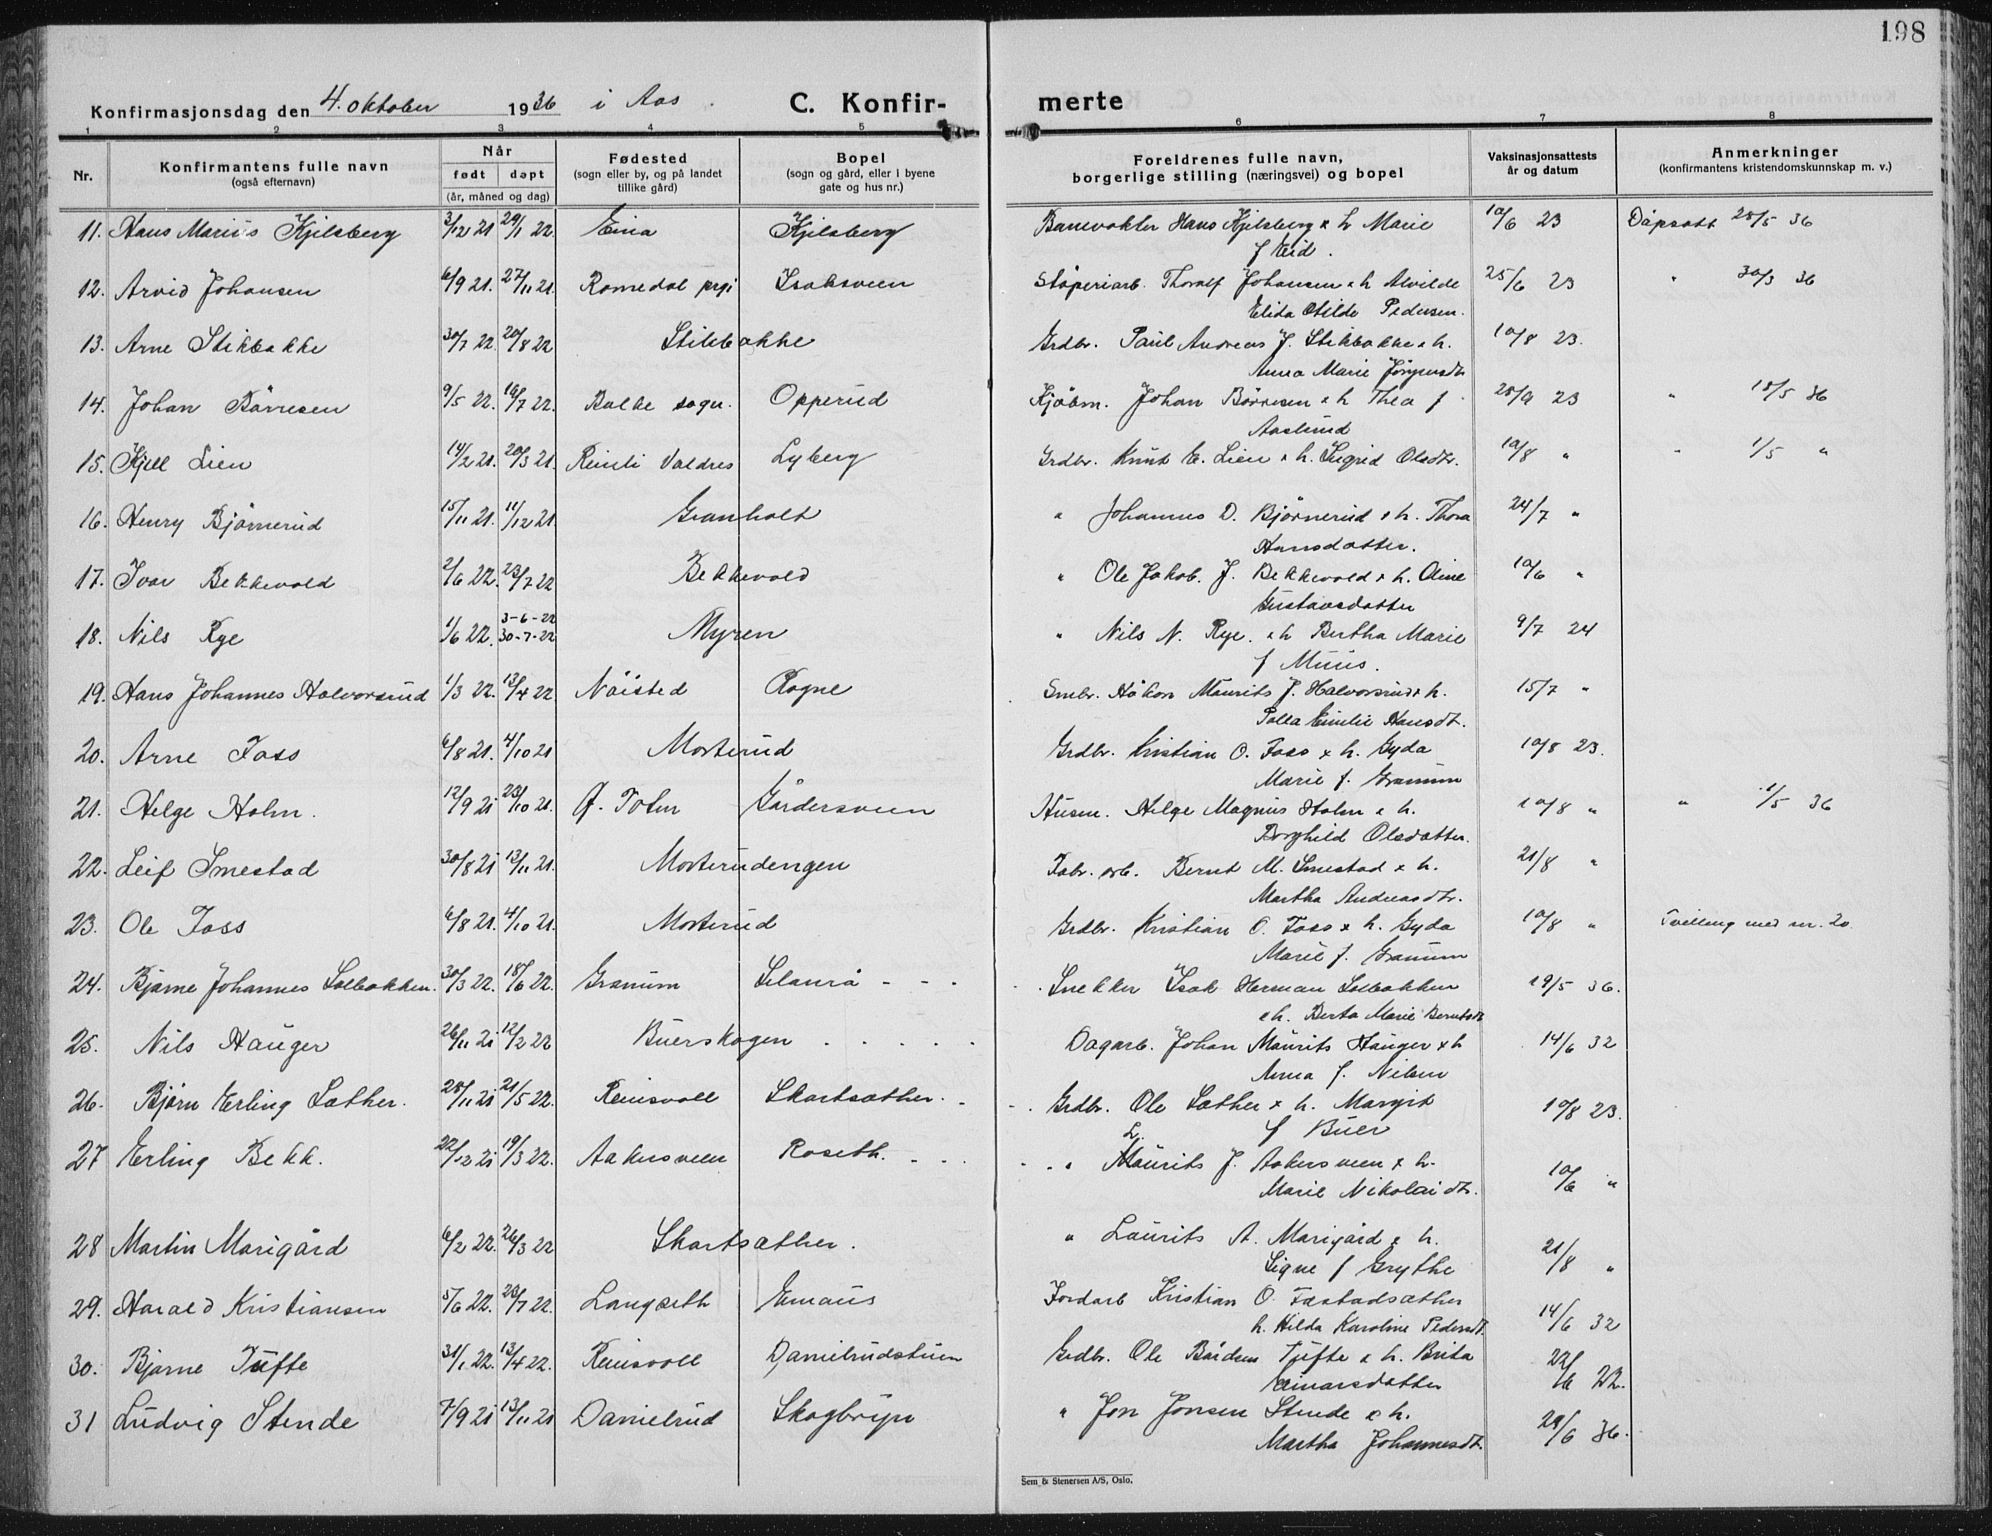 198
Konfirmasjonsdag den 4. oktober 1936 i Aas. C. Konfir- merte
1 2 3 4 5 6 7 8
Nr. Konfirmantens fulle navn (også efternavn) Når født døpt (år, måned og dag) Fødested (sogn eller by, og på landet tillike gård) Bopel (sogn og gård, eller i byene gate og hus nr.) Foreldrenes fulle navn, borgerlige stilling (næringsvei) og bopel Vaksinasjonsattests år og datum Anmerkninger (konfirmantens kristendomskunnskap m. v.)
11. Hans Marius Kjilsberg 3/12 21 29/1 22. Eina Kjilsberg Banevokter Hans Kjelsberg & h Marie 10/6 23 Dåpsatt 25/5 36
f Eid.
12. Arvid Johansen 6/9 21. 27/11 21. Romedal prgj Isaksveen Støperiarb. Thoralf Johansen & h Alvilde 25/6 23 " 30/3 36
Elida Otilde Pedersen.
13. Arne Stikbakke 30/7 22 20/8 22 Stikbakke Grdbr. Paul Andreas J. Stikbakke & h. 10/8 23.
Anna Marie Jørgensdtr
14. Johan Børresen 9/5 22. 16/7 22. Balke sogn. Opperud Kjøbm. Johan Børresen & h Thea f 28/9 23 " 18/5 36
Aaslund
15. Kjell Lien 14/2 21. 20/3 21. Reinli Valdres Lyberg Grdbr. Knut E. Lien & h. Sigrid Olsdtr. 10/8 " " 1/5 "
16. Henry Bjørnerud 15/11 21. 11/12 21 Granholt " Johannes D. Bjørnerud & h. Thora 24/7 "
Hansdatter.
17. Ivar Bekkevold 2/6 22. 23/7 22 Bekkevold " Ole Jakob. J. Bekkevold & h. Oline 10/6 "
Gustavsdatter
18. Nils Rye 1/6 22. 3-6-22 30-7-22 Myren " Nils N. Rye. & h Bertha Marie 9/7 24
f Muus.
19. Hans Johannes Halvorsrud 1/3 22. 13/4 22 Nøisted Rogne Smbr. Håkon Maurits J. Halvorsrud & h. 15/7 "
Palla Emilie Hansdt.
20. Arne Foss 6/8 21. 4/10 21 Morterud Grdbr. Kristian O. Foss & h. Gyda 10/8 23.
Marie f. Granum
21. Helge Holm. 12/9 21 23/10 21. Ø. Toten Gårdersveen Husm. Helge Magnus Holm & h. 10/8 " " 1/5 36
Borghild Olsdatter.
22. Leif Smestad 30/8 21 13/11 21. Morterudengen Fabr. arb. Bernt M. Smestad & h. 21/8 "
Martha Andreasdtr.
23. Ole Foss 6/8 21. 4/10 21. Morterud Grdbr. Kristian O. Foss & h. Gyda 10/8 " Tvilling med nr. 20.
Marie f. Granum
24. Bjarne Johannes Solbakken. 30/3 22. 18/6 22. Granum Snekker Isak Herman Solbakken 19/5 36.
& h. Berta Marie Berntsdt
25. Nils Hauger 26/11 21 12/2 22 Buerskogen Dagarb. Johan Maurits Hauger & h 14/6 32
Anna f. Nilsen
26. Bjørn Erling Sæther. 28/11 21 21/5 22. Reinsvoll Skartsæther. Grdbr. Ole Sæther & h. Margit 10/8 23.
f Buer
27 Erling Bekk. 22/12 21 19/3 22. Aakersveen Roseth. " Maurits J. Aakersveen & h. 10/6 "
Marie Nikolaidtr.
28 Martin Marigård 6/2 22. 26/3 22 Skartsæther. " Laurits A. Marigård & h. 21/8 "
Signe f Grythe
29. Harald Kristiansen 5/6 22. 23/7 22. Langseth Emaus Jordarb Kristian O. Fæstadsæther 14/6 32
h. Hilda Karoline Pedersdt.
30. Bjarne Tufte 31/1 22. 13/4 22. Reinsvoll Danielrudstuen Grdbr. Ole Bårdsen Tufte & h. Brita 22/6 22.
Einarsdatter
31 Ludvig Stende 7/9 21 13/11 21 Danielrud Skogbryn " Jon Jonsen Stende & h. 29/6 36.
Martha Johannesdt.
Sem & Stenersen A/S, Oslo.